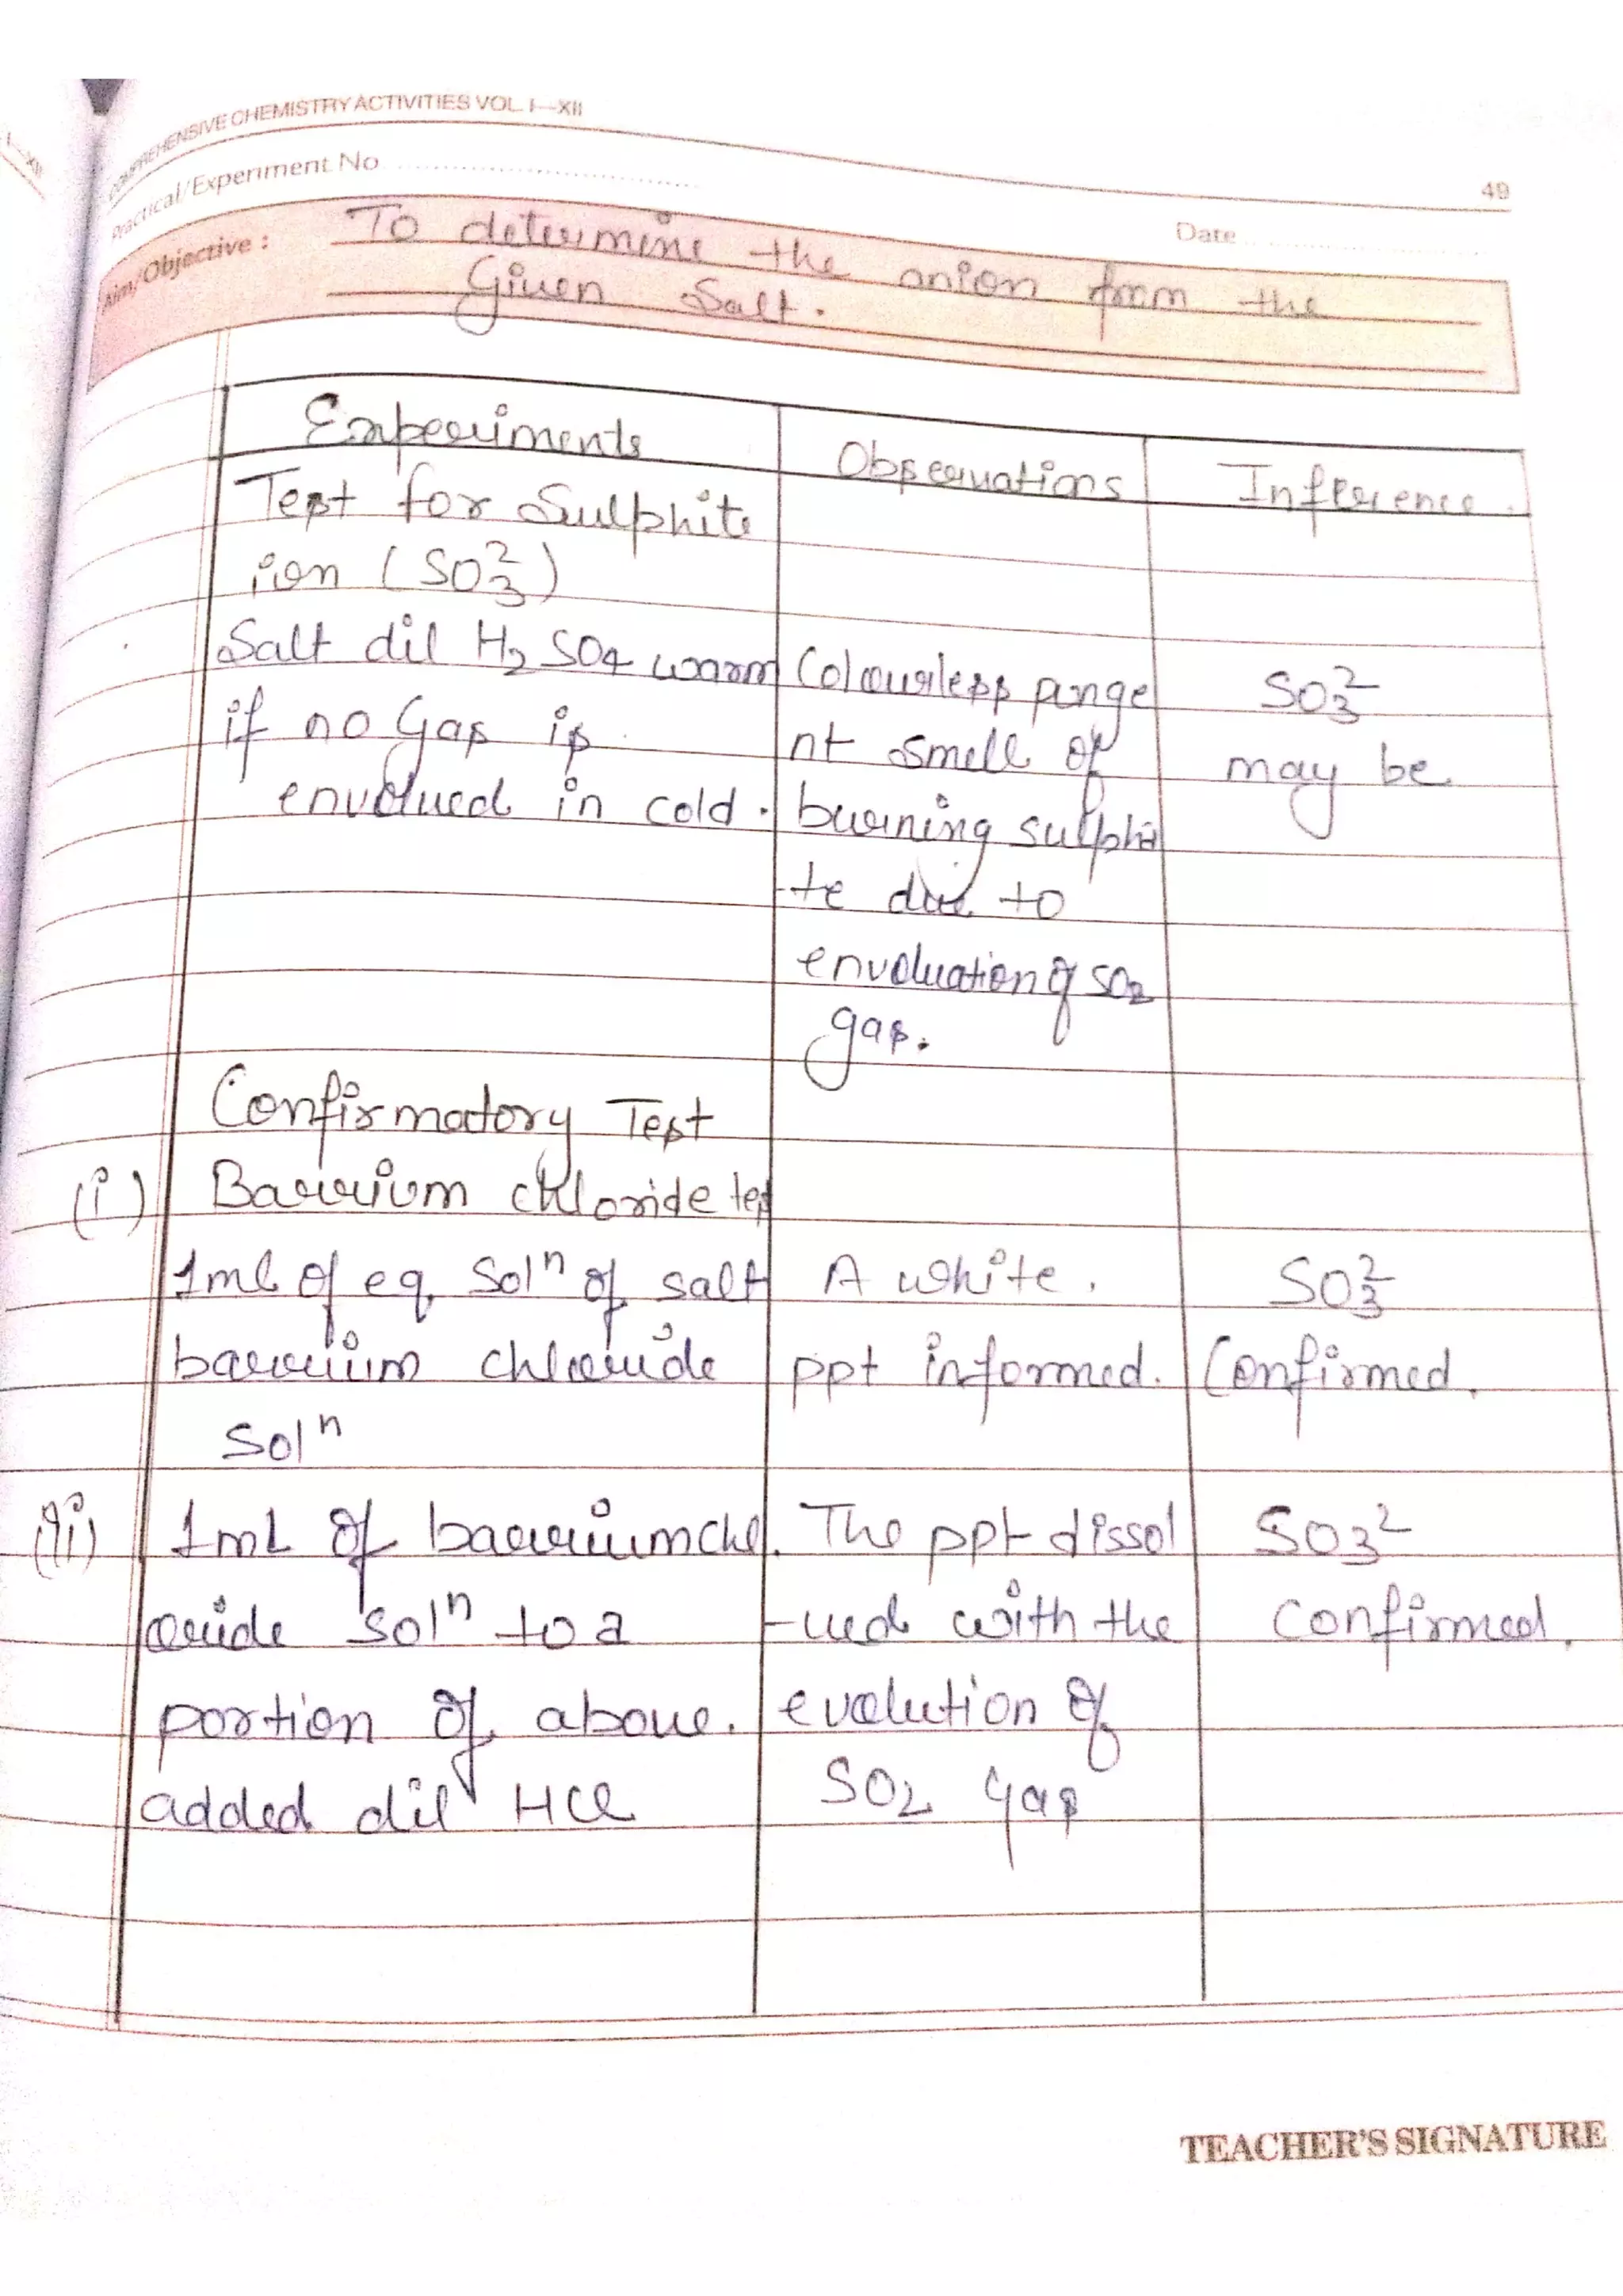 COMPREHENSIVE CHEMISTRY ACTIVITIES VOL. I—XII
Practical/Experiment No
49
Date
Aim/Objective :
To determine the anion from the
Given Salt.
Experiments
Observations
Inference.
Test for Sulphite
ion (SO3²)
Salt dil H2SO4 warm
if no Gas is
envolved in cold.
Colourless punge
nt smell of
burning sulphi
te due to
envoluation of SO2
gas.
SO3²⁻
may be
Confirmatory Test
(i) Barrium chloride test
1ml of eq. Solⁿ of salt
barrium chloride
Solⁿ
A white.
ppt informed.
SO3²⁻
Confirmed.
(ii) 1mL of barriumchl
oride solⁿ to a
portion of above.
added dil HCl
The ppt dissol
-ved with the
evolution of
SO2 gas
SO3²⁻
confirmed.
TEACHER'S SIGNATURE